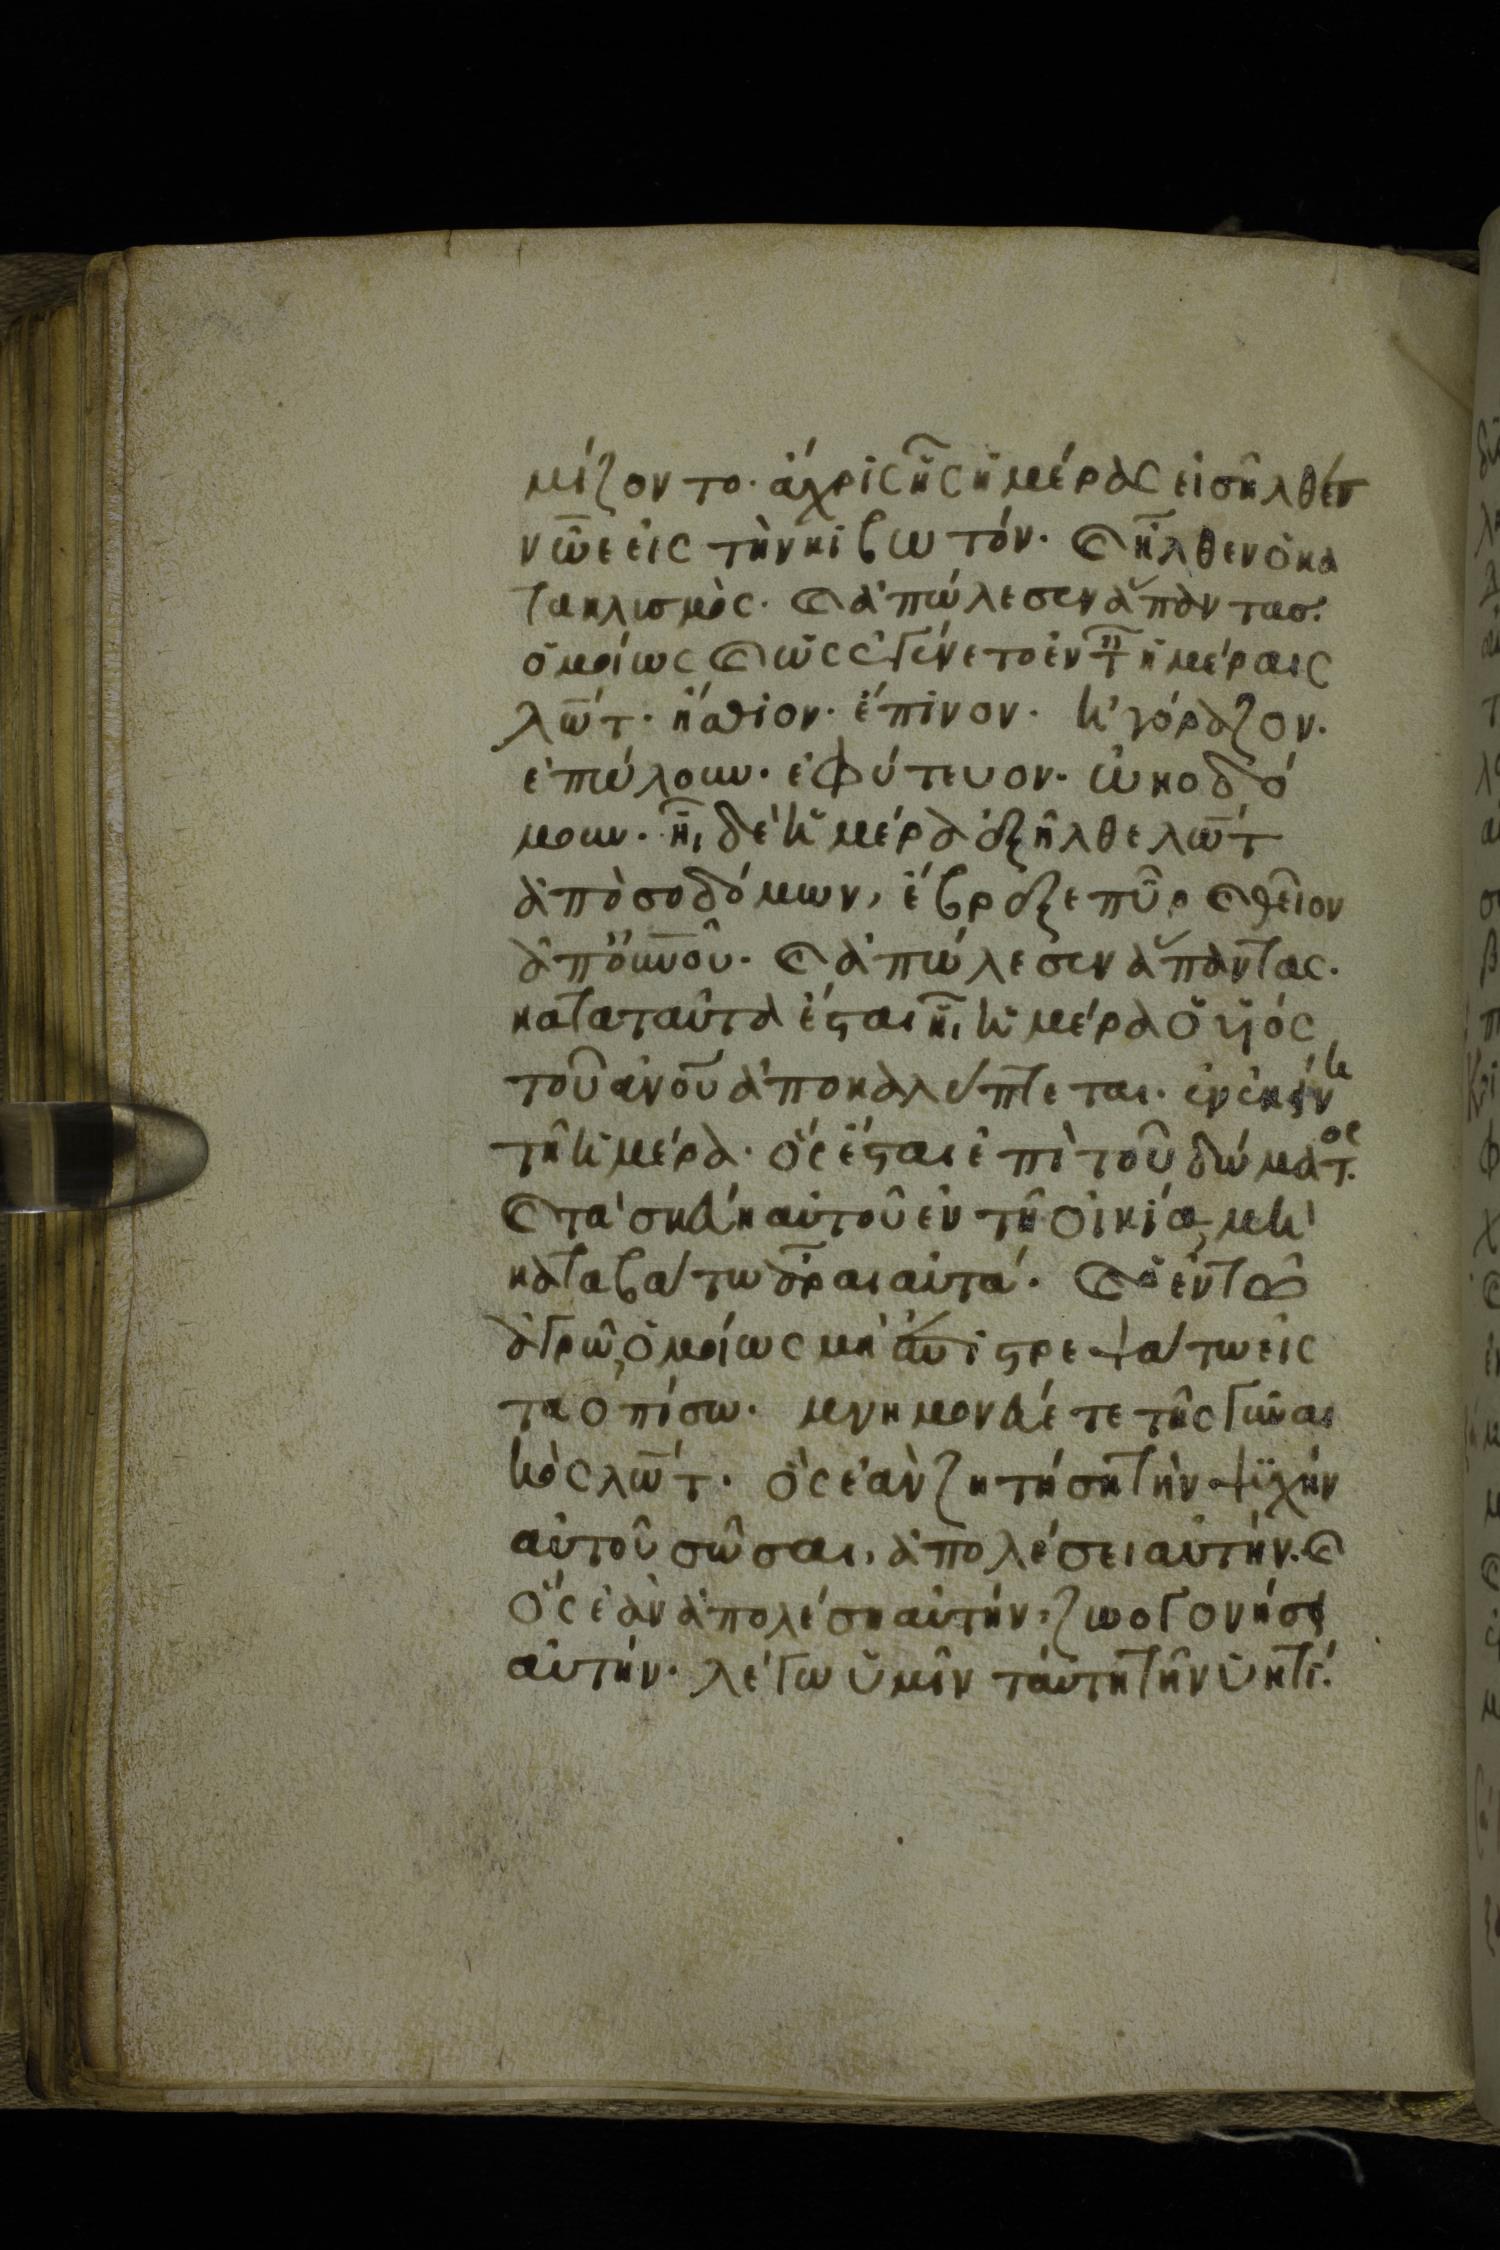 μίζοντο· ἄχρις ἧς ἡμέρας εἰσῆλθεν
νῶε εἰς τὴν κιβωτόν· καὶ ἦλθεν ὁ κα
τακλισμὸς· καὶ ἀπώλεσεν ἅπαντας·
ὁμοίως καὶ ὡς ἐγένετο ἐν τ ἡμέραις
λώτ· ἤσθιον· ἔπινον· ἠγόραζον·
ἐπώλουν· ἐφύτευον· ὠκοδό
μουν· ἧ, δὲ ἡμέρα ἐξῆλθε λώτ
ἀπὸ σοδόμων, ἔβρεξε πῦρ καὶ θεῖον
ἀπὸ οὐνοῦ· καὶ ἀπώλεσεν ἅπαντας·
κατὰ ταῦτα ἔσται ἧ, ἡμέρα ὁ υἱός
τοῦ ἀνοῦ ἀποκαλύπτεται· ἐν ἐκείνη
τῆ ἡμέρα· ὃς ἔσται ἐπὶ τοῦ δώματος
καὶ τὰ σκεύη αὐτοῦ ἐν τῆ οἰκία, μὴ
καταβάτω ἆραι αὐτά· καὶ ὁ ἐν τῶ
ἀγρῶ, ὁμοίως μὴ ἀντιστρεψάτω εἰς
τὰ ὀπίσω· μνημονεύετε τῆς γυναι
κὸς λώτ· ὃς ἐὰν ζητήση τὴν ψυχὴν
αὐτοῦ σῶσαι, ἀπολέσει αὐτήν· καὶ
ὃς ἐὰν ἀπολέση αὐτήν, ζωογονήσει
αὐτήν· λέγω ὑμῖν ταύτη τῆ νυκτί·